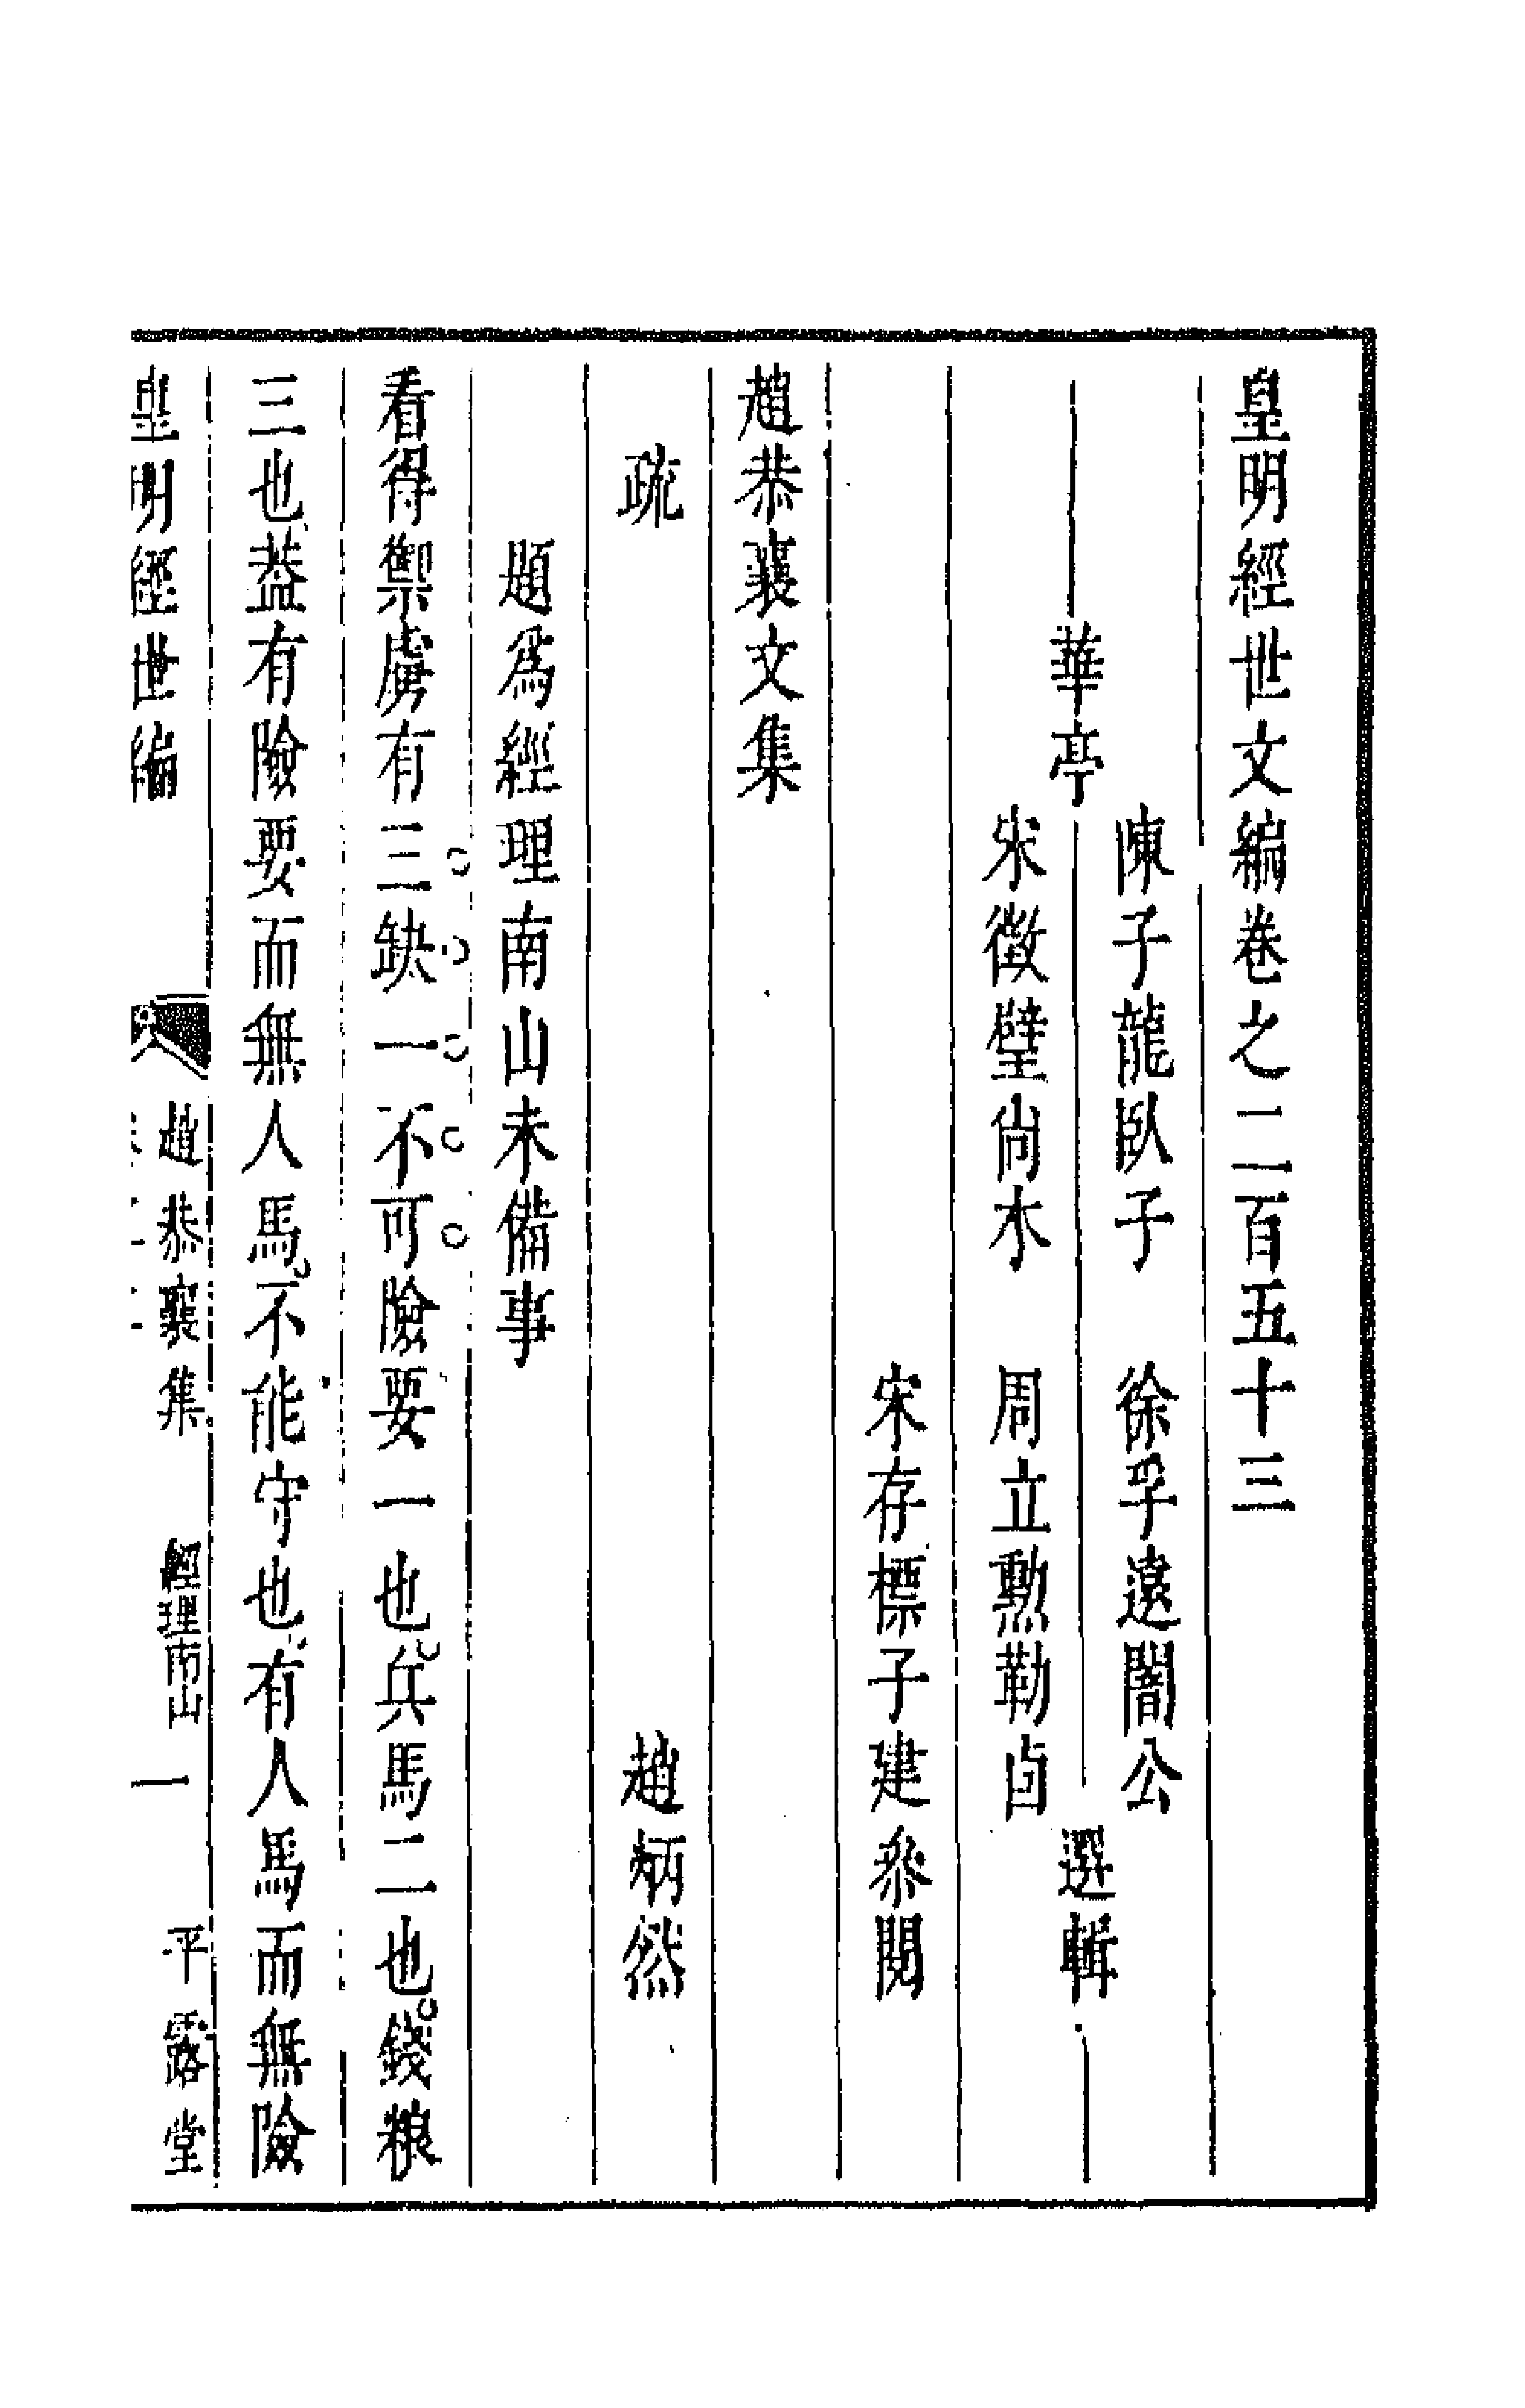 皇明經世文編卷之二百五十三
華亭
陳子龍臥子　徐孚遠闇公
宋徵璧尚木　周立勳勒卣
選輯
宋存標子建參閱
趙恭襄文集
疏　趙炳然
題爲經理南山未備事
看得禦虜有三缺一不可險要一也兵馬二也錢粮
三也葢有險要而無人馬不能守也有人馬而無險
皇明經世編
趙恭襄集　經理南山　一　平露堂